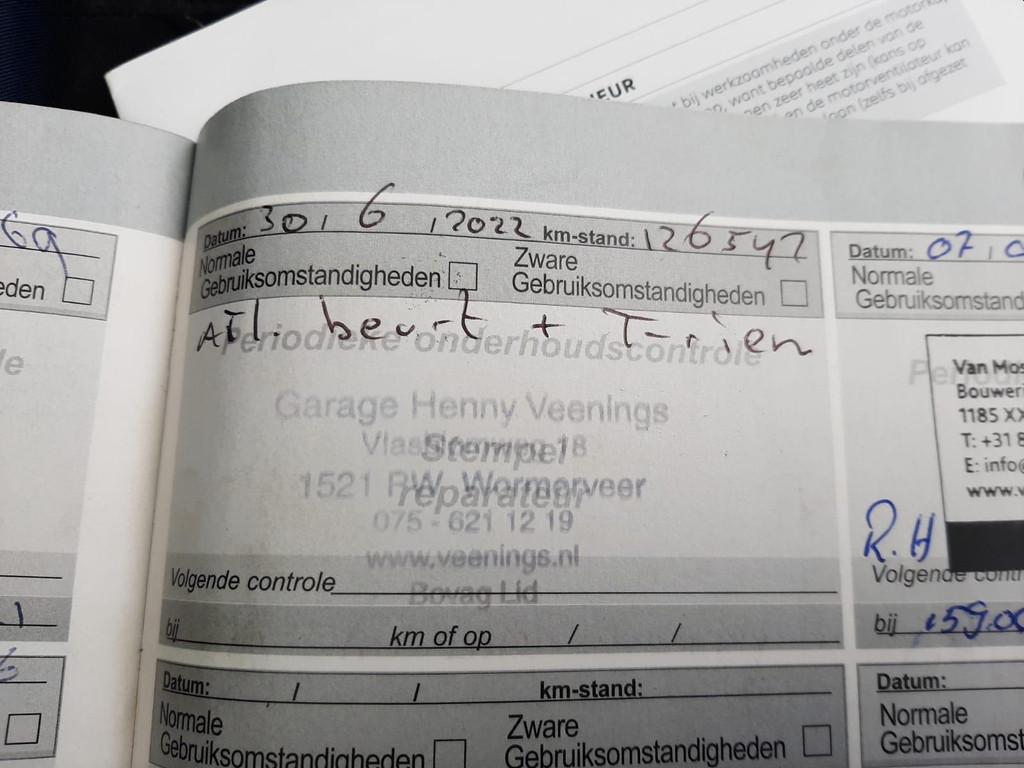 IEUR
bij werkzaamheden onder de motorka
want bepaalde delen van de
zeer heet zijn (kans op
en de motorventilateur kan
(zelfs bij afgezet
69
eden
Datum: 30 / 6 / 2022 km-stand: 126547
Normale
Gebruiksomstandigheden
Zware
Gebruiksomstandigheden
beurt + T-rien
Periodieke onderhoudscontrole
Garage Henny Veenings
18
Stempel
1521 RW Wormerveer
réparateur
075 - 621 12 19
www.veenings.nl
Volgende controle
Bovag Lid
bij km of op / /
Datum: / / km-stand:
Normale
Gebruiksomstandigheden
Zware
Gebruiksomstandigheden
Datum: 07, 0
Normale
Gebruiksomstand
Van Mos
Bouwer
1185 XX
T: +31 8
E: info@
www.v
R.H
Volgende contr
bij 159.00
Datum:
Normale
Gebruiksomst